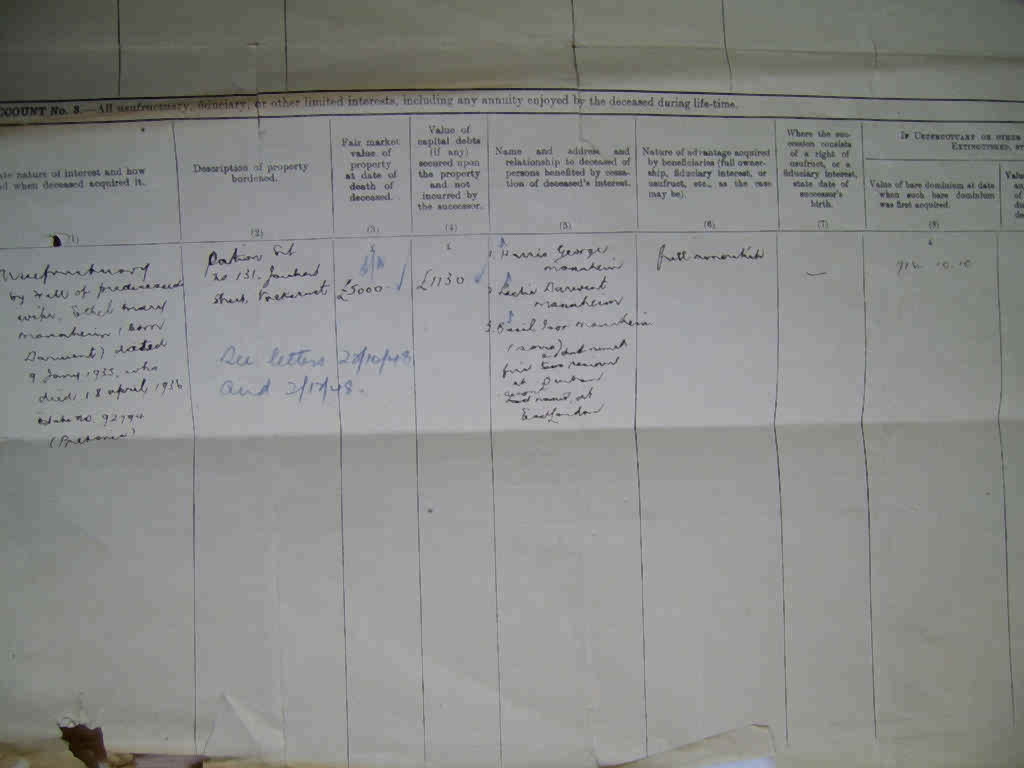 CCOUNT No. 3.—All usufructuary, fiduciary, or other limited interests, including any annuity enjoyed by the deceased during life-time.
ate nature of interest and how
d when deceased acquired it.
(1)
Description of property
burdened.
(2)
Fair market
value of
property
at date of
death of
deceased.
(3)
Value of
capital debts
(if any)
secured upon
the property
and not
incurred by
the successor.
(4)
Name and address and
relationship to deceased of
persons benefited by cessa-
tion of deceased's interest.
(5)
Nature of advantage acquired
by beneficiaries (full owner-
ship, fiduciary interest, or
usufruct, etc., as the case
may be).
(6)
Where the suc-
cession consists
of a right of
usufruct, or a
fiduciary interest,
state date of
successor's
birth.
(7)
If Usufructuary or other
Extinguished, st
Value of bare dominium at date
when such bare dominium
was first acquired.
(8)
Valu
an
of
du
de
Usufructuary
by Will of predeceased
wife, Ethel Mary
Mannheim (born
Darwent) dated
9 Jany 1935, who
died 18 April 1936
Estate no. 92794
(Pretoria)
Portion
no 131, Joubert
Street,
£
£5000
£
£1130
See letters 22/10/48
and 2/12/48.
1. Harris George
Mannheim
2 Leslie Darwent
Mannheim
3. Basil Ivor Mannheim
(sons)
first two
at Durban
at
East London
full
£